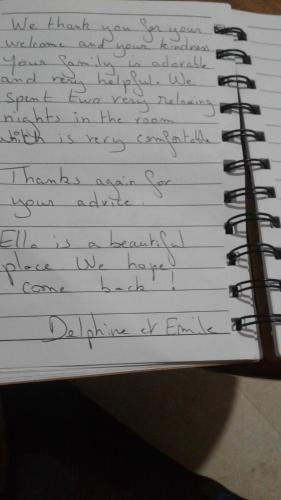 We thank you for your
welcome and your kindness
Your family is adorable
and very helpful. We
spent two very relaxing
nights in the room
which is very comfortable
Thanks again for
your advice.
Ella is a beautiful
place We hope
come back !
Delphine et Emile